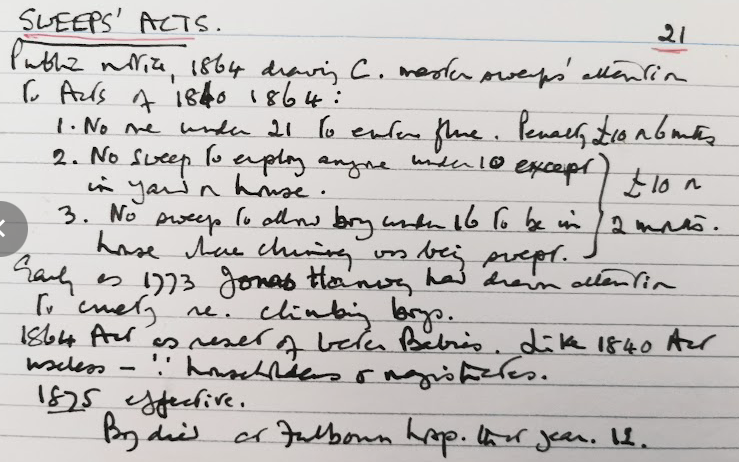 SWEEPS' ACTS.
21
Public notice, 1864 drawing C. master sweeps' attention
to Acts of 1840 1864 :
1. No one under 21 to enter flue. Penalty £10 or 6 mths
2. No sweep to employ anyone under 10 except
in yard or house.
£10 or
3. No sweep to allow boy under 16 to be in
2 mnths.
house where chimney was being swept.
Early as 1773 Jonas Hanway had drawn attention
to cruelty re. climbing boys.
1864 Act as result of Water Babies. Like 1840 Act
useless – ∵ householders & magistrates.
1875 effective.
Boy died at Fulbourn hosp. that year. 12.